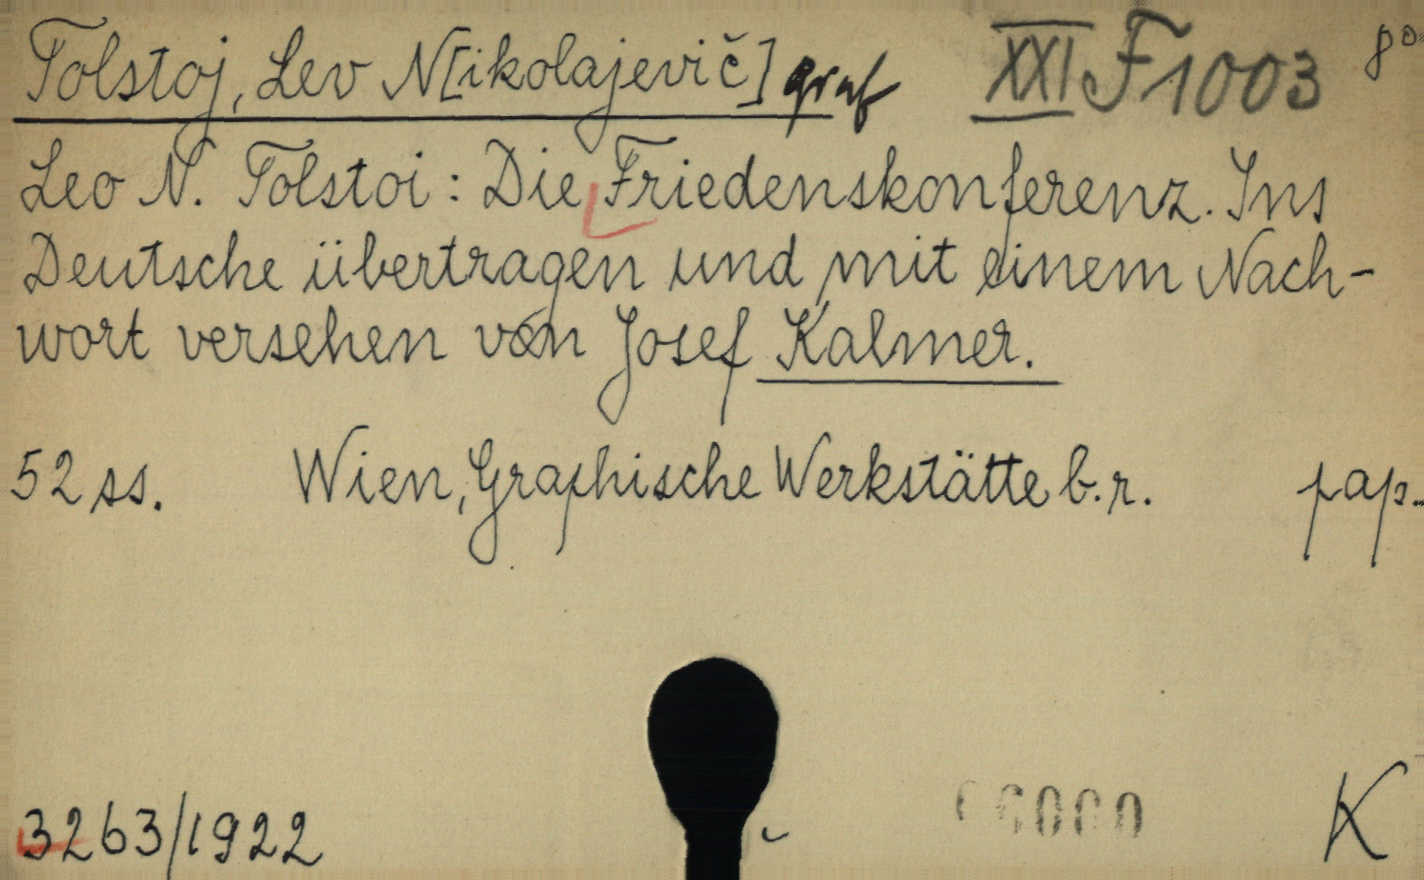 Tolstoj, Lev N[ikolajevič] graf XXI F 1003 8°
Leo N. Tolstoi: Die Friedenskonferenz. Ins
Deutsche übertragen und mit einem Nach-
wort versehen von Josef Kalmer.
52 ss. Wien, Graphische Werkstätte b.r. pap.
3263/1922 K